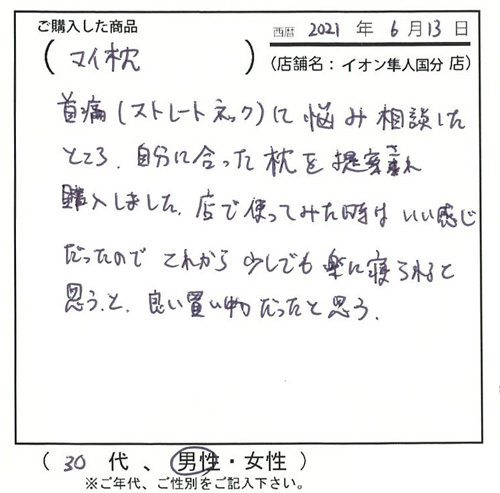 ご購入した商品
西暦 2021 年 6 月 13 日
(マイ枕)
(店舗名：イオン隼人国分 店)
首痛(ストレートネック)に悩み相談した
ところ、自分に合った枕を提案され
購入しました。店で使ってみた時はいい感じ
だったので これから少しでも楽に寝られると
思うと、良い買い物だったと思う。
(30 代、男性・女性)
※ご年代、ご性別をご記入下さい。